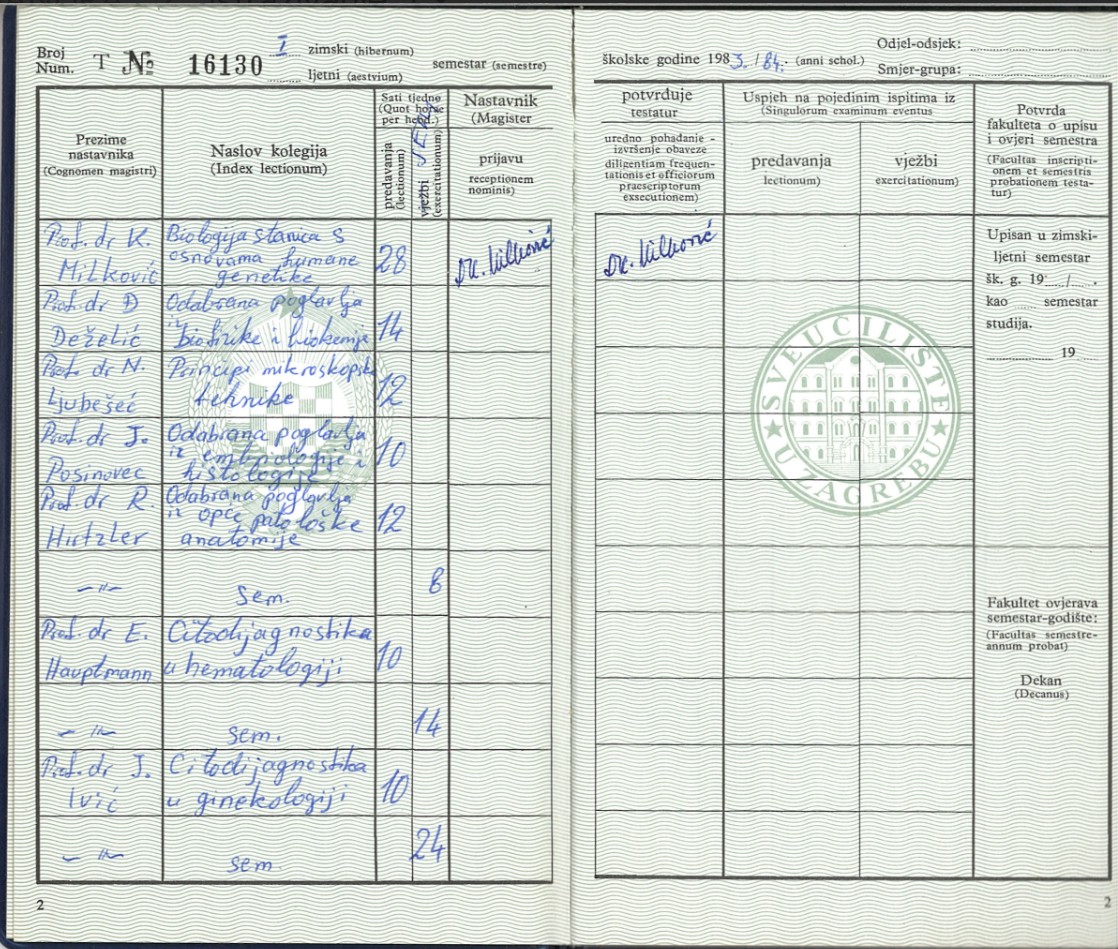 Broj
Num. T № 16130
I zimski (hibernum)
ljetni (aestvium)
semestar (semestre)
Prezime
nastavnika
(Cognomen magistri)
Naslov kolegija
(Index lectionum)
Sati tjedno
(Quot horae
per hebd.)
predavanja
(lectionum)
vježbi
(exercitationum)
SEM.
Nastavnik
(Magister
prijavu
receptionem
nominis)
Prof. dr K.
Milković
Biologija stanica s
osnovama humane
genetike
28
Dr. Milković
Prof. dr D
Deželić
Odabrana poglavlja
iz biofizike i biokemije
14
Prof. dr N.
Ljubešeć
Principi mikroskopske
tehnike
12
Prof. dr J.
Posinovec
Odabrana poglavlja
iz embriologije i
histologije
10
Prof. dr R.
Hirtzler
Odabrana poglavlja
iz opće patološke
anatomije
12
–〃–
sem.
8
Prof. dr E.
Hauptmann
Citodijagnostika
u hematologiji
10
–〃–
sem.
14
Prof. dr J.
Ivić
Citodijagnostika
u ginekologiji
10
–〃–
sem.
24
2
školske godine 1983./84. (anni schol.)
Odjel-odsjek:
Smjer-grupa:
potvrđuje
testatur
uredno pohađanje -
izvršenje obaveze
diligentiam frequen-
tationis et officiorum
praescriptorum
exsecutionem)
Uspjeh na pojedinim ispitima iz
(Singulorum examinum eventus
predavanja
lectionum)
vježbi
exercitationum)
Potvrda
fakulteta o upisu
i ovjeri semestra
(Facultas inscripti-
onem et semestris
probationem testa-
tur)
Dr. Milković
Upisan u zimski-
ljetni semestar
šk. g. 19..../.... .
kao .... semestar
studija.
19
SVEUČILIŠTE
U ZAGREBU
Fakultet ovjerava
semestar-godište:
(Facultas semestre-
annum probat)
Dekan
(Decanus)
2